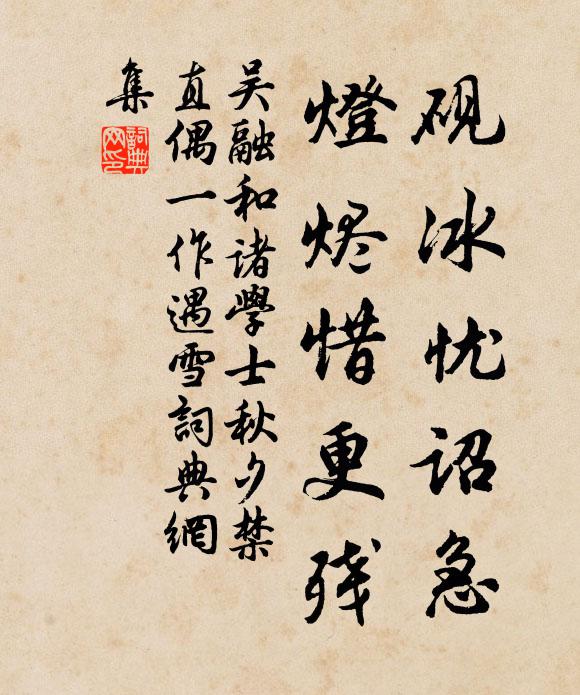 砚冰忧诏急
燈烬惜更残
吴融和诸學士秋夕禁
直偶一作遇雪詞典網
集
詞典
网印